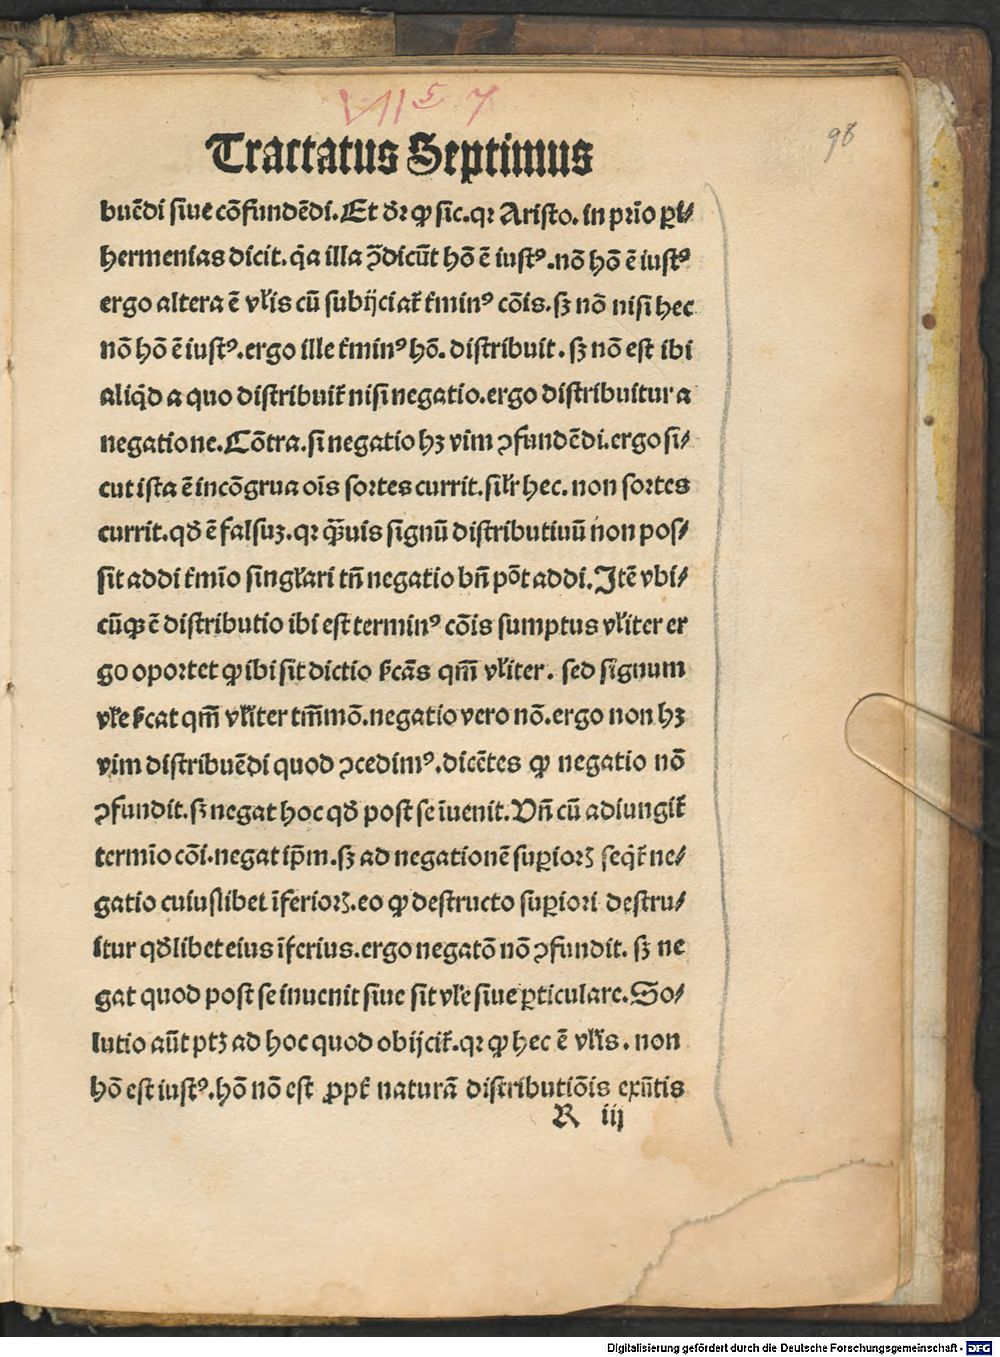 VII 5 7
98
Tractatus Septimus
buẽdi siue cõfundẽdi. Et dr̃ ꝙ sic. qꝛ Aristo. in prĩo ꝑi⸗
hermenias dicit. q̃a illa ↄ̃dicũt hõ ẽ iustꝰ. nõ hõ ẽ iustꝰ
ergo altera ẽ vl̃is cũ subijciat᷑ t᷑minꝰ cõis. sꝫ nõ nisi hec
nõ hõ ẽ iustꝰ. ergo ille t᷑minꝰ hõ. distribuit. sꝫ nõ est ibi
aliq̃d a quo distribuit᷑ nisi negatio. ergo distribuitur a
negatione. Cõtra. si negatio hꝫ vim ↄfundẽdi. ergo si⸗
cut ista ẽ incõgrua oĩs sortes currit. sil̃r hec. non sortes
currit. qđ ẽ falsuꝫ. qꝛ q̃uis signũ distributiuũ non pos⸗
sit addi t᷑mĩo singl̃ari tñ negatio bñ põt addi. Itẽ vbi⸗
cũqꝫ ẽ distributio ibi est terminꝰ cõis sumptus vl̃iter er
go oportet ꝙ ibi sit dictio s̃cãs qm̃ vl̃iter. sed signum
vl̃e s̃cat qm̃ vl̃iter tm̃mõ. negatio vero nõ. ergo non hꝫ
vim distribuẽdi quod ↄcedimꝰ. dicẽtes ꝙ negatio nõ
ↄfundit. sꝫ negat hoc qđ post se ĩuenit. Vñ cũ adiungit᷑
termĩo cõi. negat ip̃m. sꝫ ad negationẽ suꝑioꝝ seq̃t᷑ ne⸗
gatio cuiuslibet ĩferioꝝ. eo ꝙ destructo suꝑiori destru⸗
itur qđlibet eius ĩferius. ergo negatõ nõ ↄfundit. sꝫ ne
gat quod post se inuenit siue sit vl̃e siue ꝑticulare. So⸗
lutio aũt ptꝫ ad hoc quod obijcit᷑. qꝛ ꝙ hec ẽ vl̃is. non
hõ est iustꝰ. hõ nõ est ꝓpt᷑ naturã distributiõis exñtis
R iij
Digitalisierung gefördert durch die Deutsche Forschungsgemeinschaft - DFG